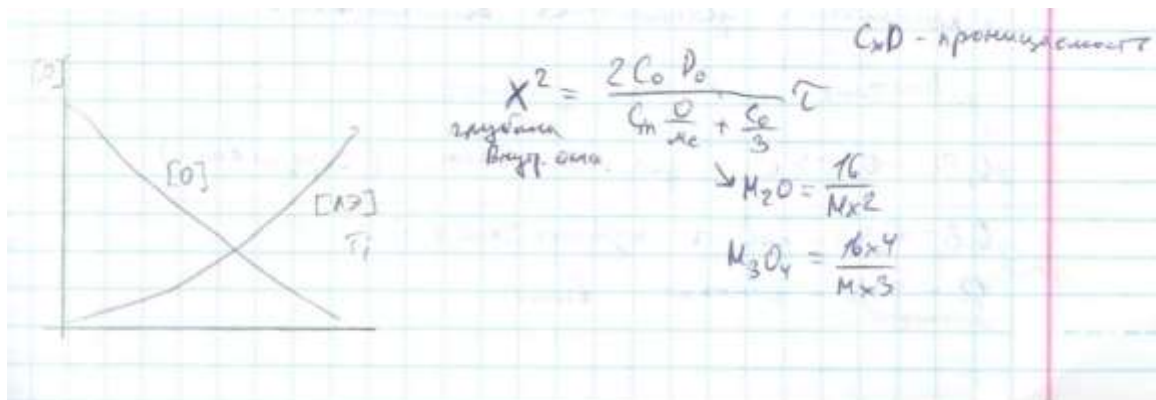 C×D - проницаемость
[O]
X² = 2C₀ D₀ / (Cₘ O/Me + C₀/3) τ
глубина
внутр. окис.
[O]
[ЛЭ]
Ti
↘ M₂O = 16 / M×2
M₃O₄ = 16×4 / M×3